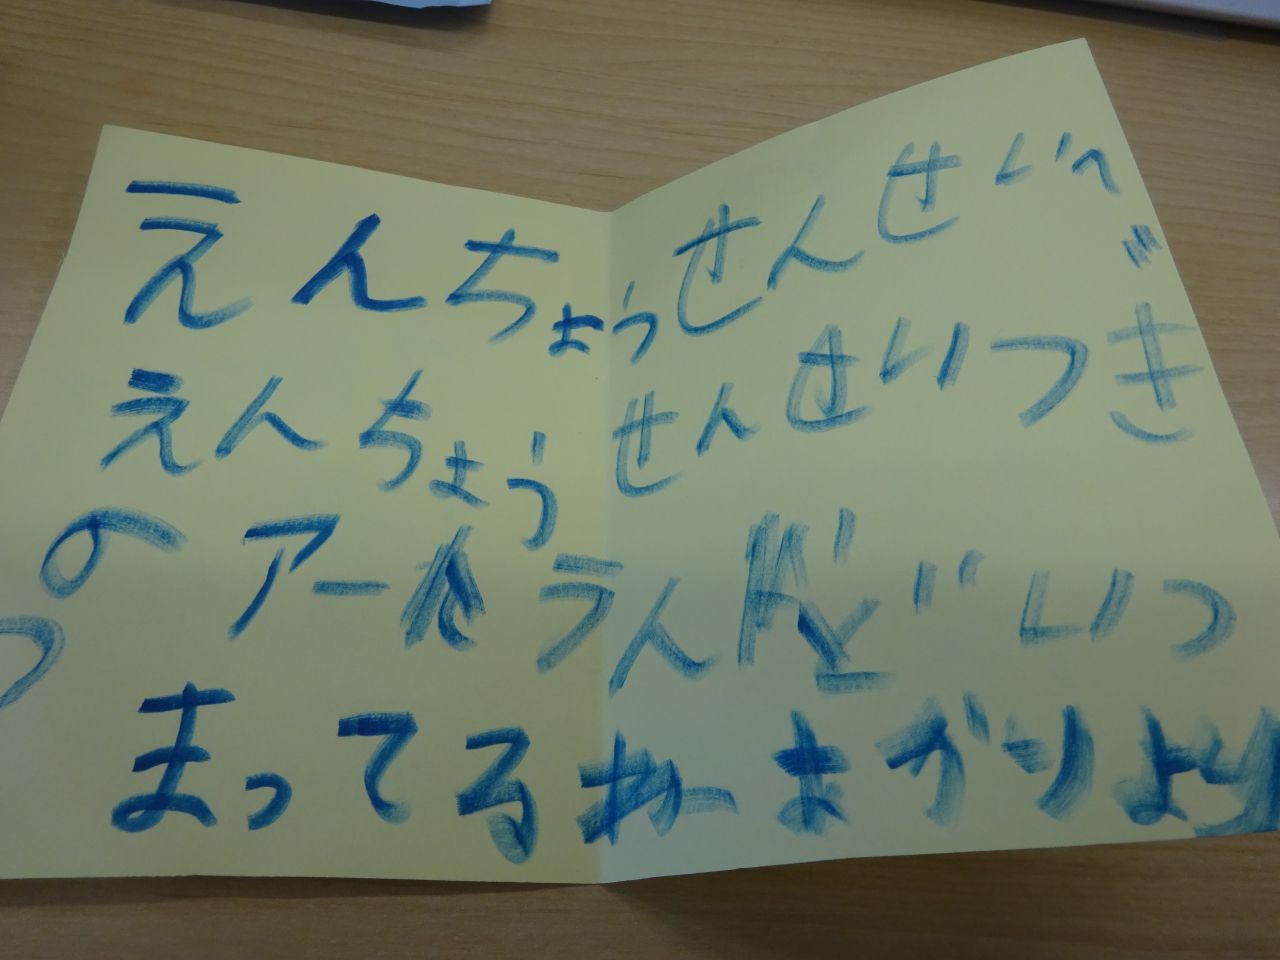 えんちょうせんせいへ
えんちょうせんせいつぎ
のアートらんどどいつ
つ
まってるね まがりより